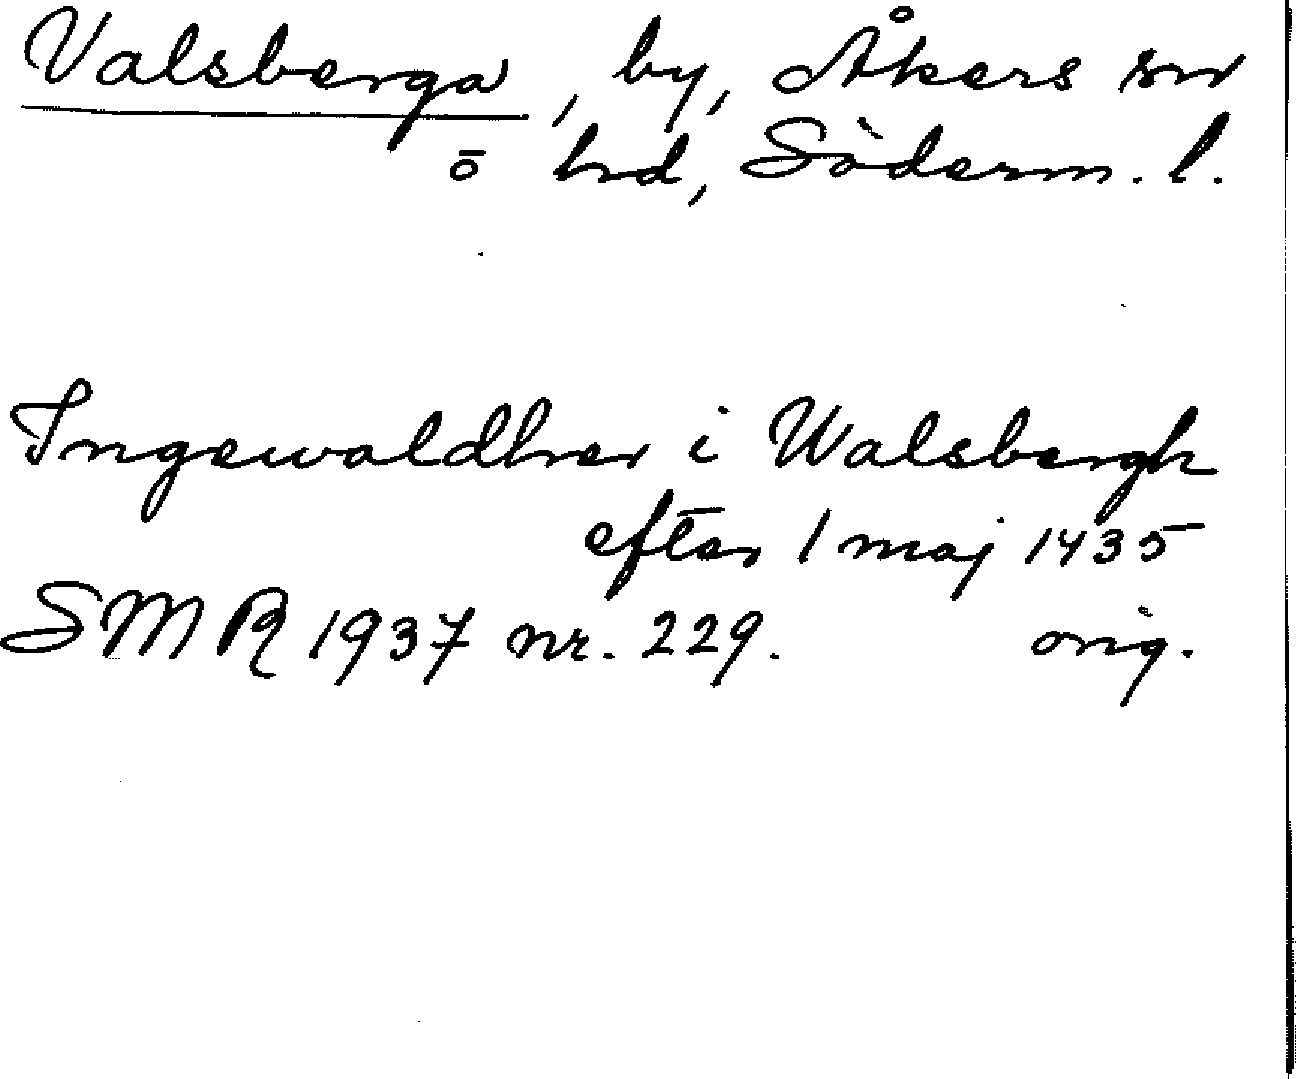 Valsberga, by, Åkers sn
ö hd, Söderm. l.
Ingewaldher i Walsbergh
efter 1 maj 1435
SMR 1937 nr. 229. orig.